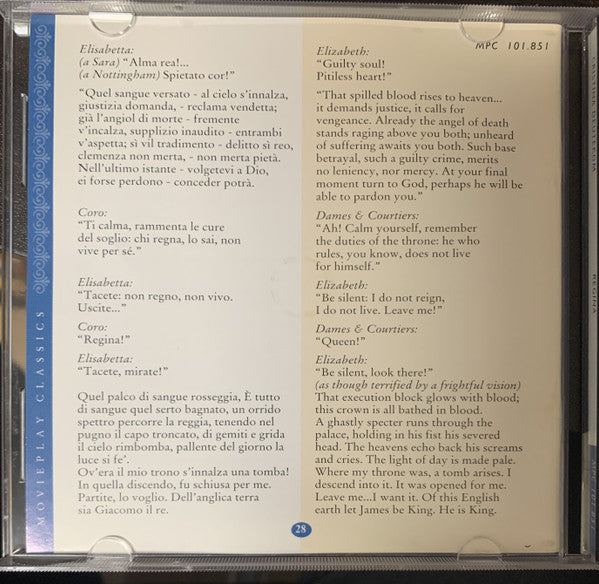 MOVIEPLAY CLASSICS
Elisabetta:
(a Sara) “Alma rea!...
(a Nottingham) Spietato cor!”
“Quel sangue versato - al cielo s’innalza,
giustizia domanda, - reclama vendetta;
già l’angiol di morte - fremente
v’incalza, supplizio inaudito - entrambi
v’aspetta; sì vil tradimento - delitto sì reo,
clemenza non merta, - non merta pietà.
Nell’ultimo istante - volgetevi a Dio,
ei forse perdono - conceder potrà.
Coro:
“Ti calma, rammenta le cure
del soglio: chi regna, lo sai, non
vive per sé.”
Elisabetta:
“Tacete: non regno, non vivo.
Uscite...”
Coro:
“Regina!”
Elisabetta:
“Tacete, mirate!”
Quel palco di sangue rosseggia, È tutto
di sangue quel serto bagnato, un orrido
spettro percorre la reggia, tenendo nel
pugno il capo troncato, di gemiti e grida
il cielo rimbomba, pallente del giorno la
luce si fe’.
Ov’era il mio trono s’innalza una tomba!
In quella discendo, fu schiusa per me.
Partite, lo voglio. Dell’anglica terra
sia Giacomo il re.
MPC 101.851
Elizabeth:
“Guilty soul!
Pitiless heart!”
“That spilled blood rises to heaven...
it demands justice, it calls for
vengeance. Already the angel of death
stands raging above you both; unheard
of suffering awaits you both. Such base
betrayal, such a guilty crime, merits
no leniency, nor mercy. At your final
moment turn to God, perhaps he will be
able to pardon you.”
Dames & Courtiers:
“Ah! Calm yourself, remember
the duties of the throne: he who
rules, you know, does not live
for himself.”
Elizabeth:
“Be silent: I do not reign,
I do not live. Leave me!”
Dames & Courtiers:
“Queen!”
Elizabeth:
“Be silent, look there!”
(as though terrified by a frightful vision)
That execution block glows with blood;
this crown is all bathed in blood.
A ghastly specter runs through the
palace, holding in his fist his severed
head. The heavens echo back his screams
and cries. The light of day is made pale.
Where my throne was, a tomb arises. I
descend into it. It was opened for me.
Leave me...I want it. Of this English
earth let James be King. He is King.
28
REGINA